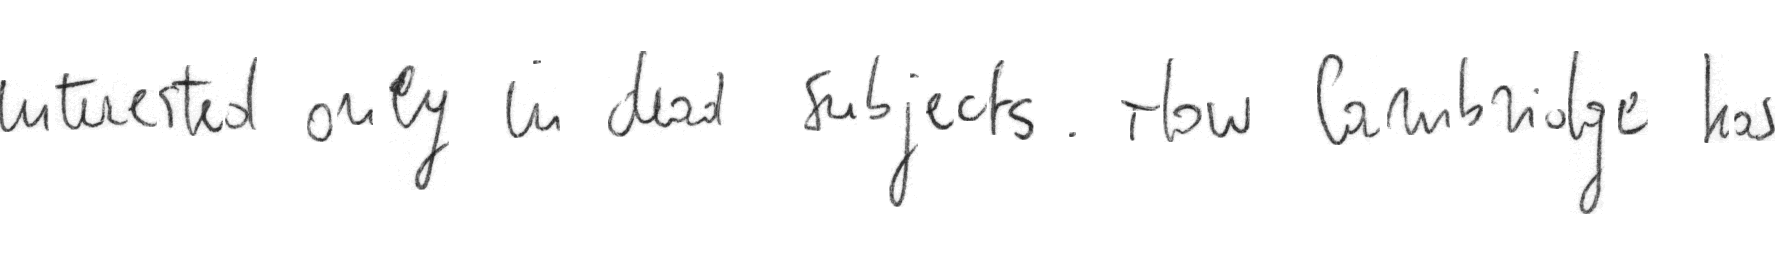 interested only in dead subjects. How Cambridge has